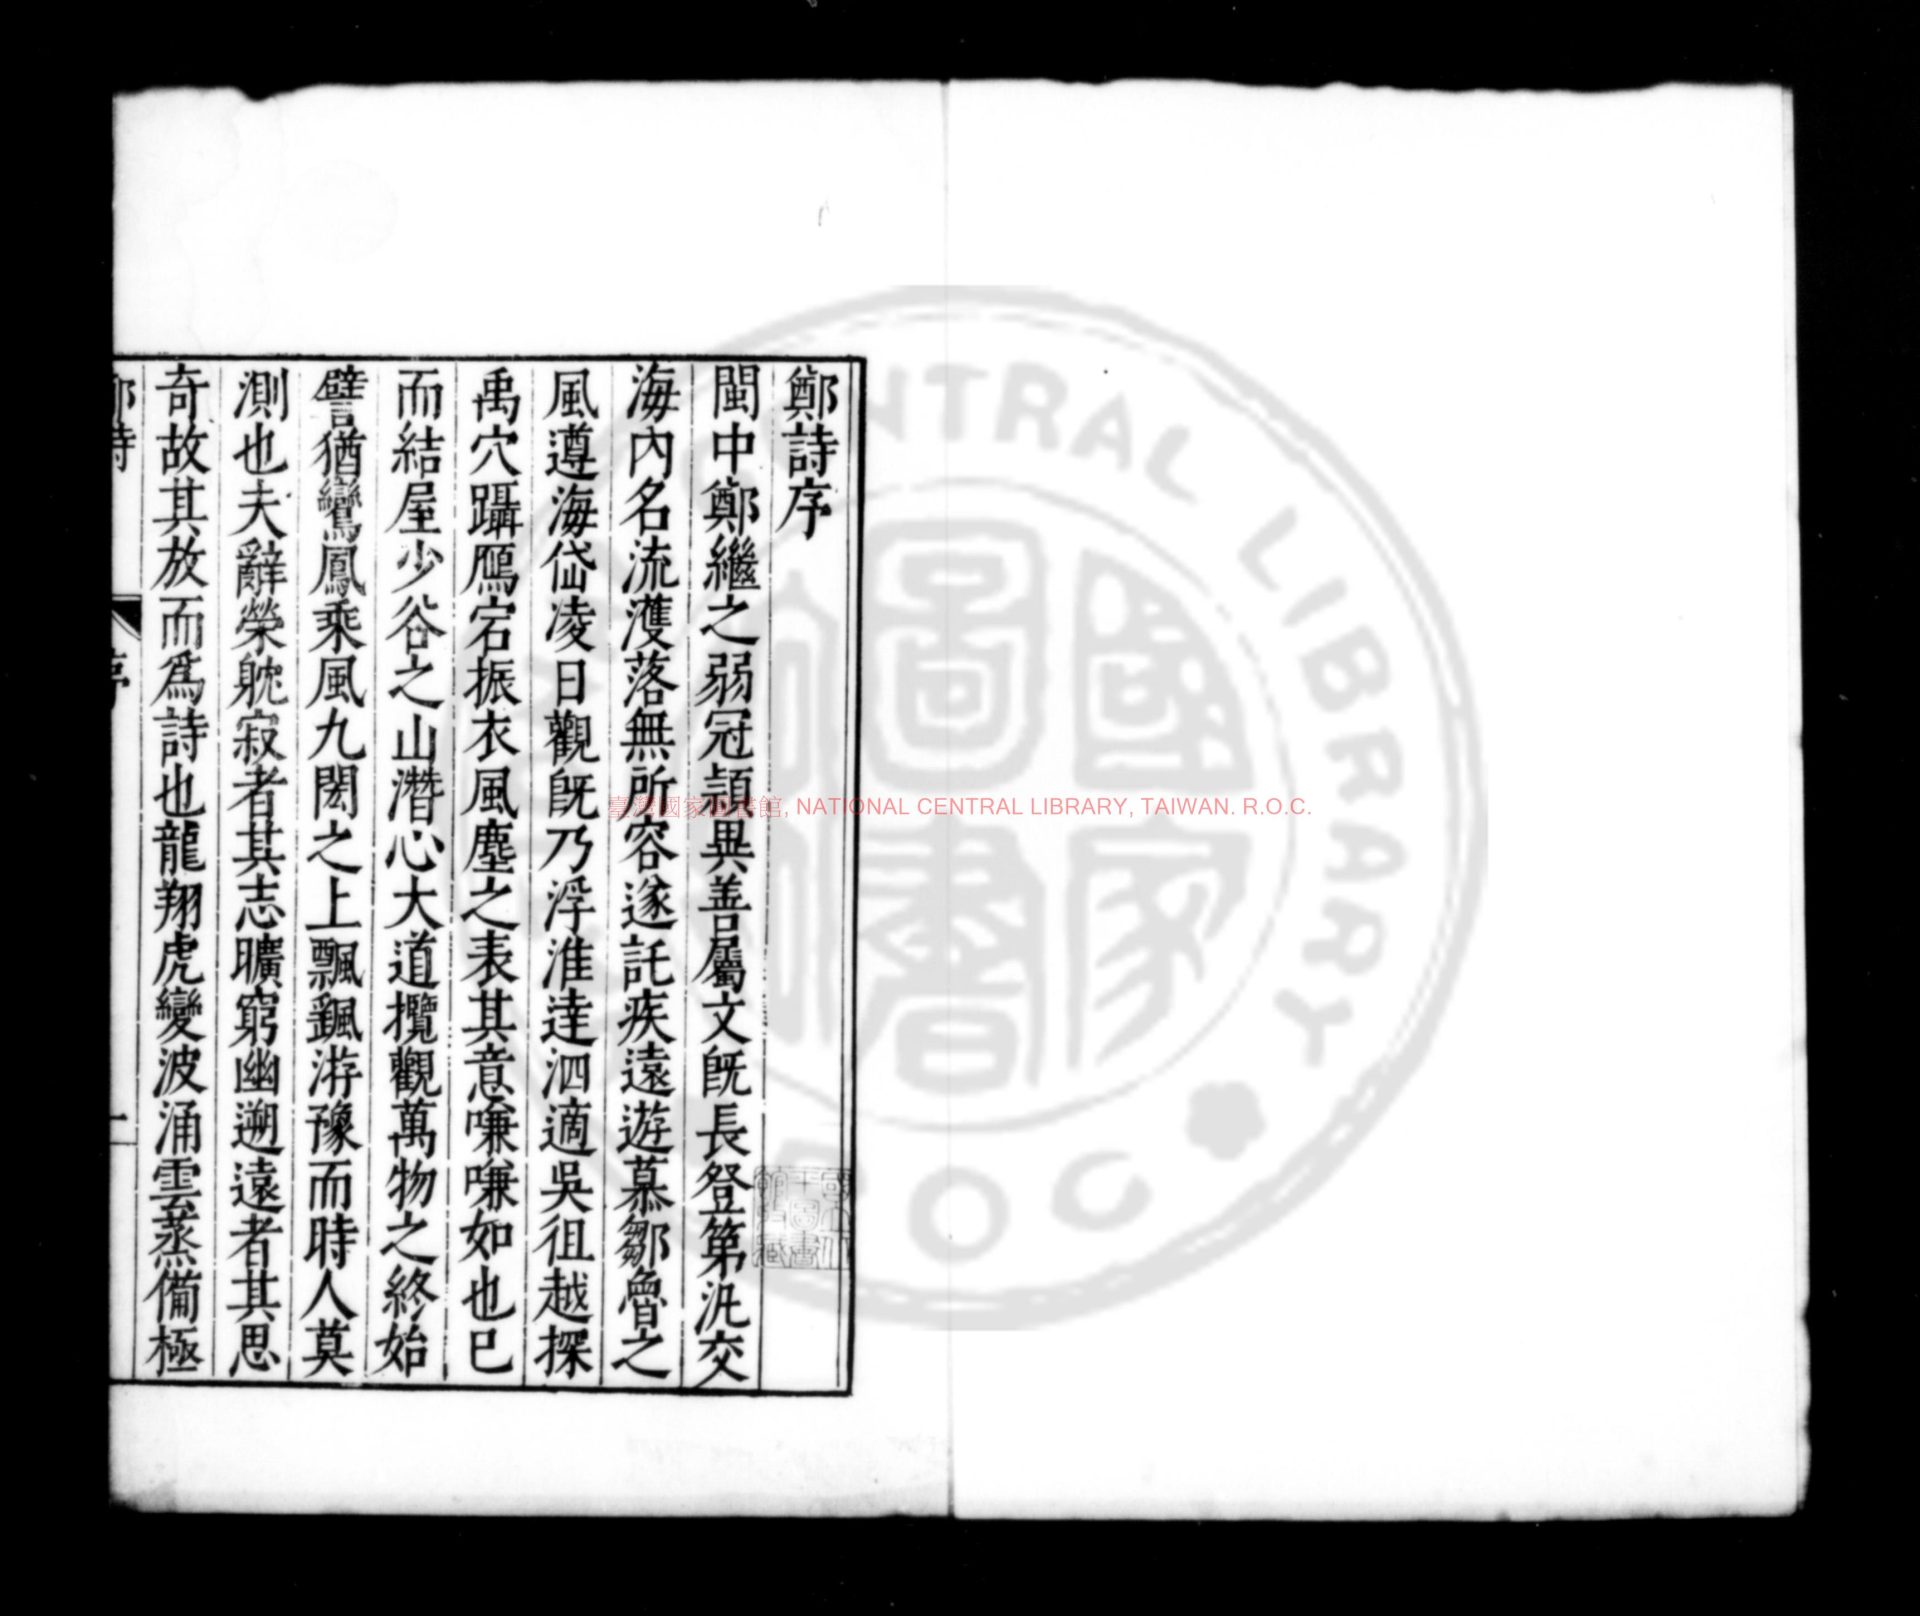 鄭詩序
閩中鄭繼之弱冠頴異善屬文旣長登第汎交
海內名流濩落無所容遂託疾遠遊慕鄒魯之
風遵海岱凌日觀旣乃浮淮達泗適吳徂越探
禹穴躡鴈宕振衣風塵之表其意嗛嗛如也已
而結屋少谷之山潛心大道攬觀萬物之終始
譬猶鸞鳳乘風九閎之上飄颻游豫而時人莫
測也夫辭榮躭寂者其志曠窮幽遡遠者其思
奇故其放而爲詩也龍翔虎變波涌雲蒸備極
鄭詩
序
一
臺灣國家圖書館, NATIONAL CENTRAL LIBRARY, TAIWAN. R.O.C.
CENTRAL LIBRARY
R O C
國家圖書